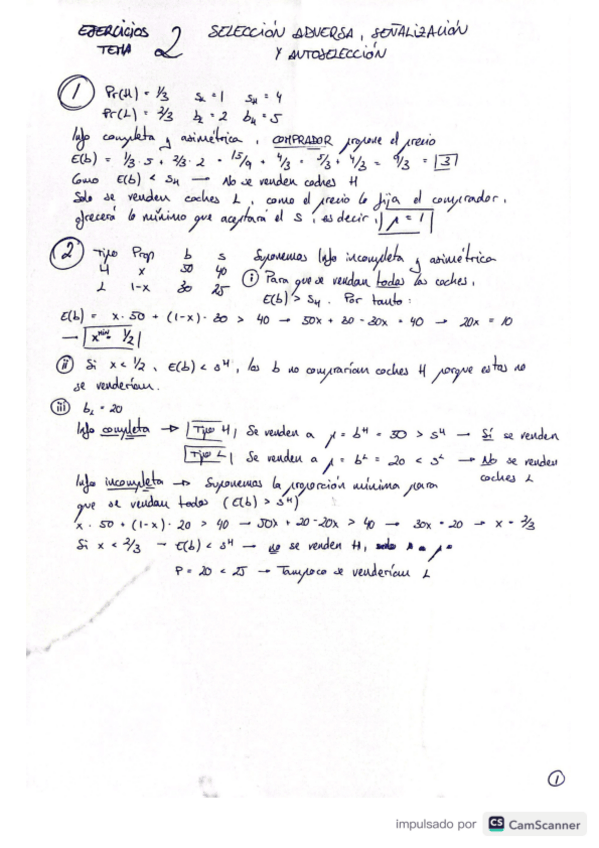 EJERCICIOS TEMA 2 SELECCIÓN ADVERSA, SEÑALIZACIÓN
Y AUTOSELECCIÓN
1 Pr(H) = 1/3 sL = 1 sH = 4
Pr(L) = 2/3 bL = 2 bH = 5
Info completa y asimétrica, COMPRADOR propone el precio
E(b) = 1/3 · 5 + 2/3 · 2 = 15/9 + 4/3 = 5/3 + 4/3 = 9/3 = 3
Como E(b) < sH → No se venden coches H
Solo se venden coches L, como el precio lo fija el comprador,
ofrecerá lo mínimo que aceptará el S, es decir, p = 1
2 Tipo Prop b s Suponemos Info incompleta y asimétrica
H x 50 40 i Para que se vendan todos los coches,
L 1-x 30 25 E(b) > sH. Por tanto:
E(b) = x · 50 + (1-x) · 30 > 40 → 50x + 30 - 30x = 40 → 20x = 10
→ xmin = 1/2
ii Si x < 1/2, E(b) < sH, los b no comprarían coches H porque estos no
se venderían.
iii bL = 20
Info completa → Tipo H, Se venden a p = bH = 50 > sH → Sí se venden
Tipo L, Se venden a p = bL = 20 < sL → No se venden
coches L
Info incompleta → Suponemos la proporción mínima para
que se vendan todos (E(b) > sH)
x · 50 + (1-x) · 20 > 40 → 50x + 20 - 20x > 40 → 30x = 20 → x = 2/3
Si x < 2/3 → E(b) < sH → no se venden H,
P = 20 < 25 → Tampoco se venderían L
1
impulsado por CS CamScanner